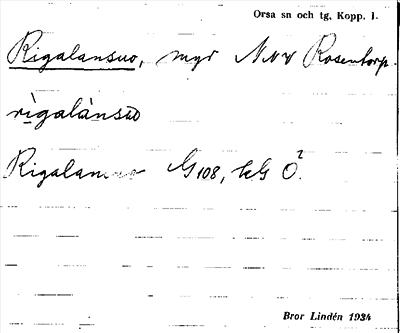 Orsa sn och tg, Kopp. l.
Rigalansuo, myr NNV Rosentorp.
rìgalànsuo
Rigalansuo G108, kG Ö².
Bror Lindén 1934